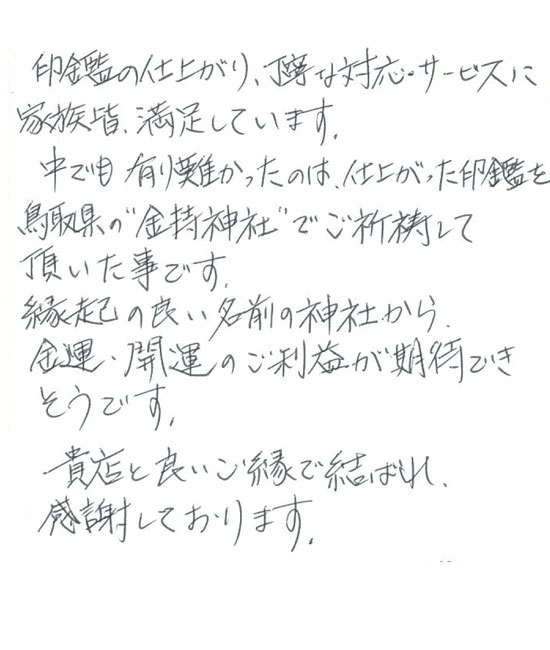 印鑑の仕上がり、丁寧な対応・サービスに
家族皆、満足しています。
中でも有り難かったのは、仕上がった印鑑を
鳥取県の"金持神社"でご祈祷して
頂いた事です。
縁起の良い名前の神社から、
金運・開運のご利益が期待でき
そうです。
貴店と良いご縁で結ばれ、
感謝しております。